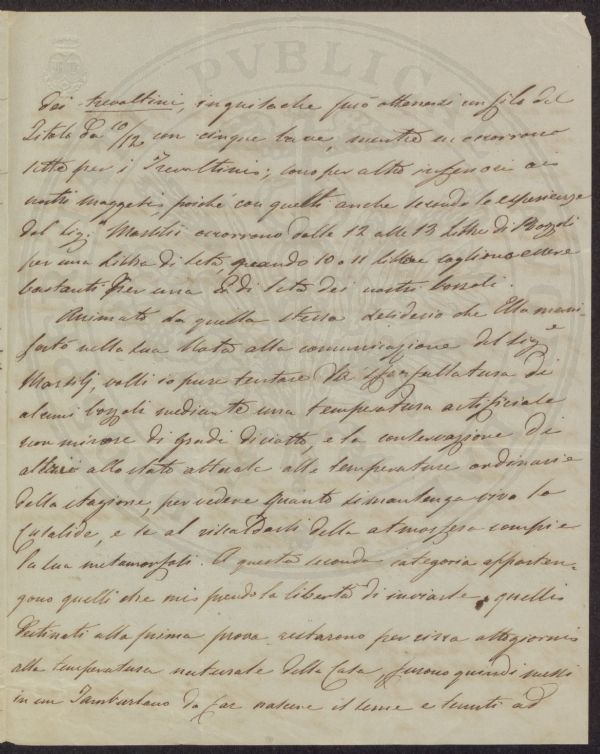 PVBLICA
dei trevoltini, inquantoche può ottenersi un filo del
Titolo da 10/12 con cinque bave, mentre ne occorrono
sette per i Trevoltini; sono per altro inferiori ai
nostri maggetti, poiché con questi anche secondo le esperienze
del Sig.e Marsilj occorrono dalle 12 alle 13 Libre di Bozzoli
per una Libra di seta, quando 10 o 11 libbre sogliono essere
bastanti per una di seta dei nostri bozzoli.
Animato da quello stesso desiderio che Ella mani-
festò nella sua Nota alla comunicazione del Sig.e
Marsilj, volli io pure tentare la sfarfallatura di
alcuni bozzoli mediante una temperatura artificiale
non minore di gradi diciotto, e la conservazione di
altri allo stato attuale alla temperatura ordinaria
della stagione, per vedere quanto si mantenga viva la
Crisalide, e se al riscaldarsi della atmosfera compie
la sua metamorfosi. A questa seconda categoria apparten-
gono quelli che mi prendo la libertà di inviarle, quelli
destinati alla prima prova restarono per circa otto giorni
alla temperatura naturale della Casa, furono quindi messi
in un Tamburlano da far nascere il seme e tenuti ad